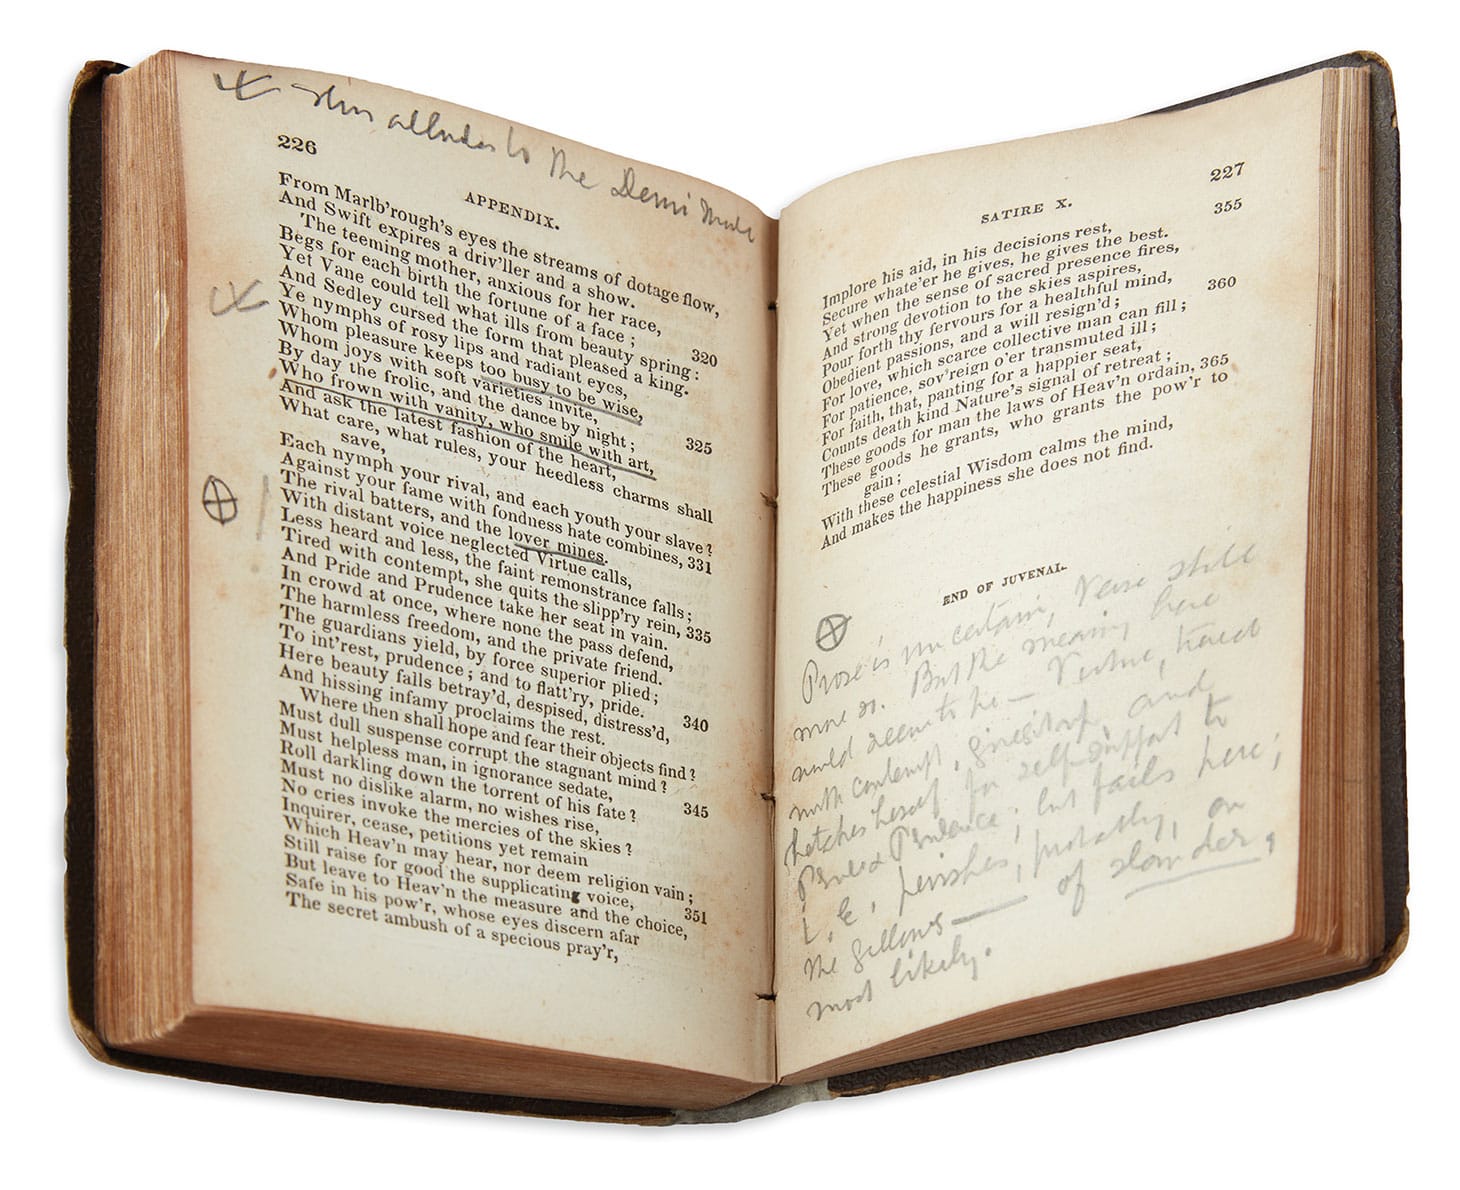 x This alludes to the Demi Monde
226
APPENDIX.
From Marlb'rough's eyes the streams of dotage flow,
And Swift expires a driv'ller and a show.
The teeming mother, anxious for her race,
Begs for each birth the fortune of a face; 320
Yet Vane could tell what ills from beauty spring:
And Sedley cursed the form that pleased a king.
x Ye nymphs of rosy lips and radiant eyes,
Whom pleasure keeps too busy to be wise,
Whom joys with soft varieties invite, 325
By day the frolic, and the dance by night;
Who frown with vanity, who smile with art,
And ask the latest fashion of the heart,
What care, what rules, your heedless charms shall
save,
Each nymph your rival, and each youth your slave?
Against your fame with fondness hate combines, 331
The rival batters, and the lover mines.
With distant voice neglected Virtue calls,
Less heard and less, the faint remonstrance falls;
Tired with contempt, she quits the slipp'ry rein, 335
And Pride and Prudence take her seat in vain.
In crowd at once, where none the pass defend,
The harmless freedom, and the private friend.
The guardians yield, by force superior plied;
To int'rest, prudence; and to flatt'ry, pride. 340
Here beauty falls betray'd, despised, distress'd,
And hissing infamy proclaims the rest.
Where then shall hope and fear their objects find?
Must dull suspense corrupt the stagnant mind?
Must helpless man, in ignorance sedate, 345
Roll darkling down the torrent of his fate?
Must no dislike alarm, no wishes rise,
No cries invoke the mercies of the skies?
Inquirer, cease, petitions yet remain
Which Heav'n may hear, nor deem religion vain;
Still raise for good the supplicating voice, 351
But leave to Heav'n the measure and the choice,
Safe in his pow'r, whose eyes discern afar
The secret ambush of a specious pray'r,
227
SATIRE X.
Implore his aid, in his decisions rest, 355
Secure whate'er he gives, he gives the best.
Yet when the sense of sacred presence fires,
And strong devotion to the skies aspires,
Pour forth thy fervours for a healthful mind,
Obedient passions, and a will resign'd; 360
For love, which scarce collective man can fill;
For patience, sov'reign o'er transmuted ill;
For faith, that, panting for a happier seat,
Counts death kind Nature's signal of retreat;
These goods for man the laws of Heav'n ordain, 365
These goods he grants, who grants the pow'r to
gain;
With these celestial Wisdom calms the mind,
And makes the happiness she does not find.
END OF JUVENAL.
Prose is uncertain, Verse still
more so. But the meaning here
would seem to be — Virtue, tired
with contempt, gives up, and
hitches herself for self-support to
Pride & Prudence; but fails here;
i.e, perishes, probably, on
the gallows — of slander,
most likely.